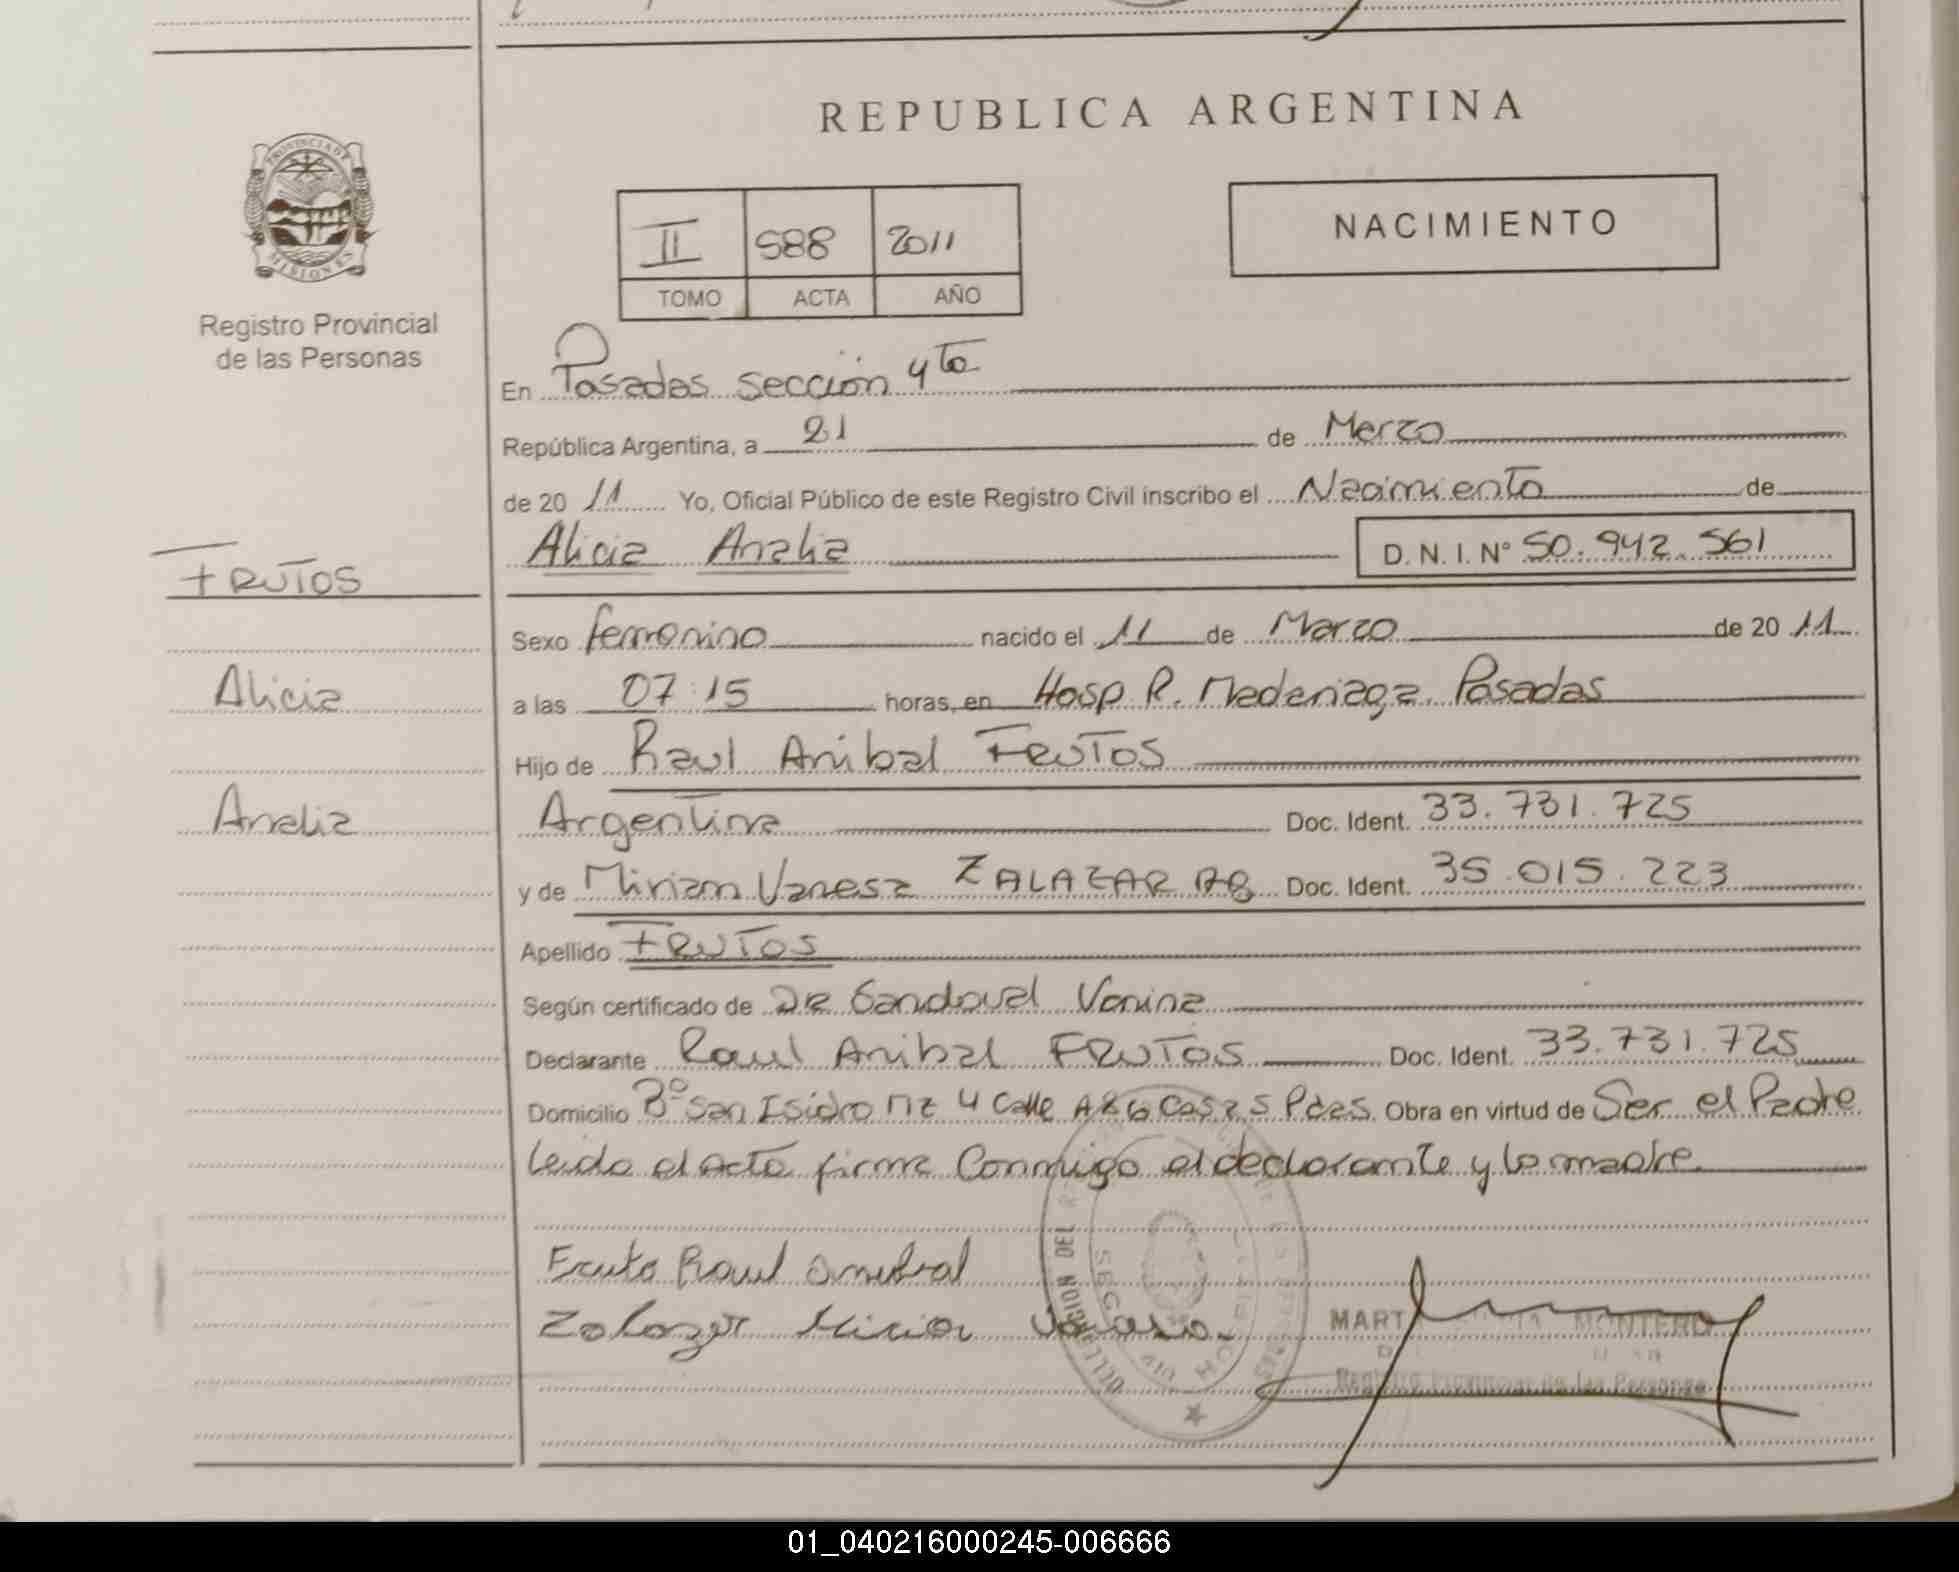 REPUBLICA ARGENTINA
PROVINCIA DE
MISIONES
Registro Provincial
de las Personas
NACIMIENTO
II 588 2011
TOMO ACTA AÑO
En Posadas sección 4ta
República Argentina, a 21 de Marzo
de 20 11 Yo, Oficial Público de este Registro Civil inscribo el Nacimiento de
Alicia Analia D. N. I. N° 50.942.561
FRUTOS
Alicia
Analia
Sexo femenino nacido el 11 de Marzo de 20 11
a las 07:15 horas, en Hosp. R. Madariaga. Posadas
Hijo de Raul Anibal FRUTOS
Argentina Doc. Ident. 33.731.725
y de Miriam Vanesa ZALAZAR Doc. Ident. 35.015.223
Apellido FRUTOS
Según certificado de Dra Sandoval Vanina
Declarante Raul Anibal FRUTOS Doc. Ident. 33.731.725
Domicilio B° San Isidro Mz 4 Calle Casa 5 Pdas. Obra en virtud de Ser el Padre
Leida el acta firma Conmigo el declarante y la madre
Fruto Raul
Zalazar
DELEGACION DEL
MONTERO
Registro Provincial de las Personas
01_040216000245-006666